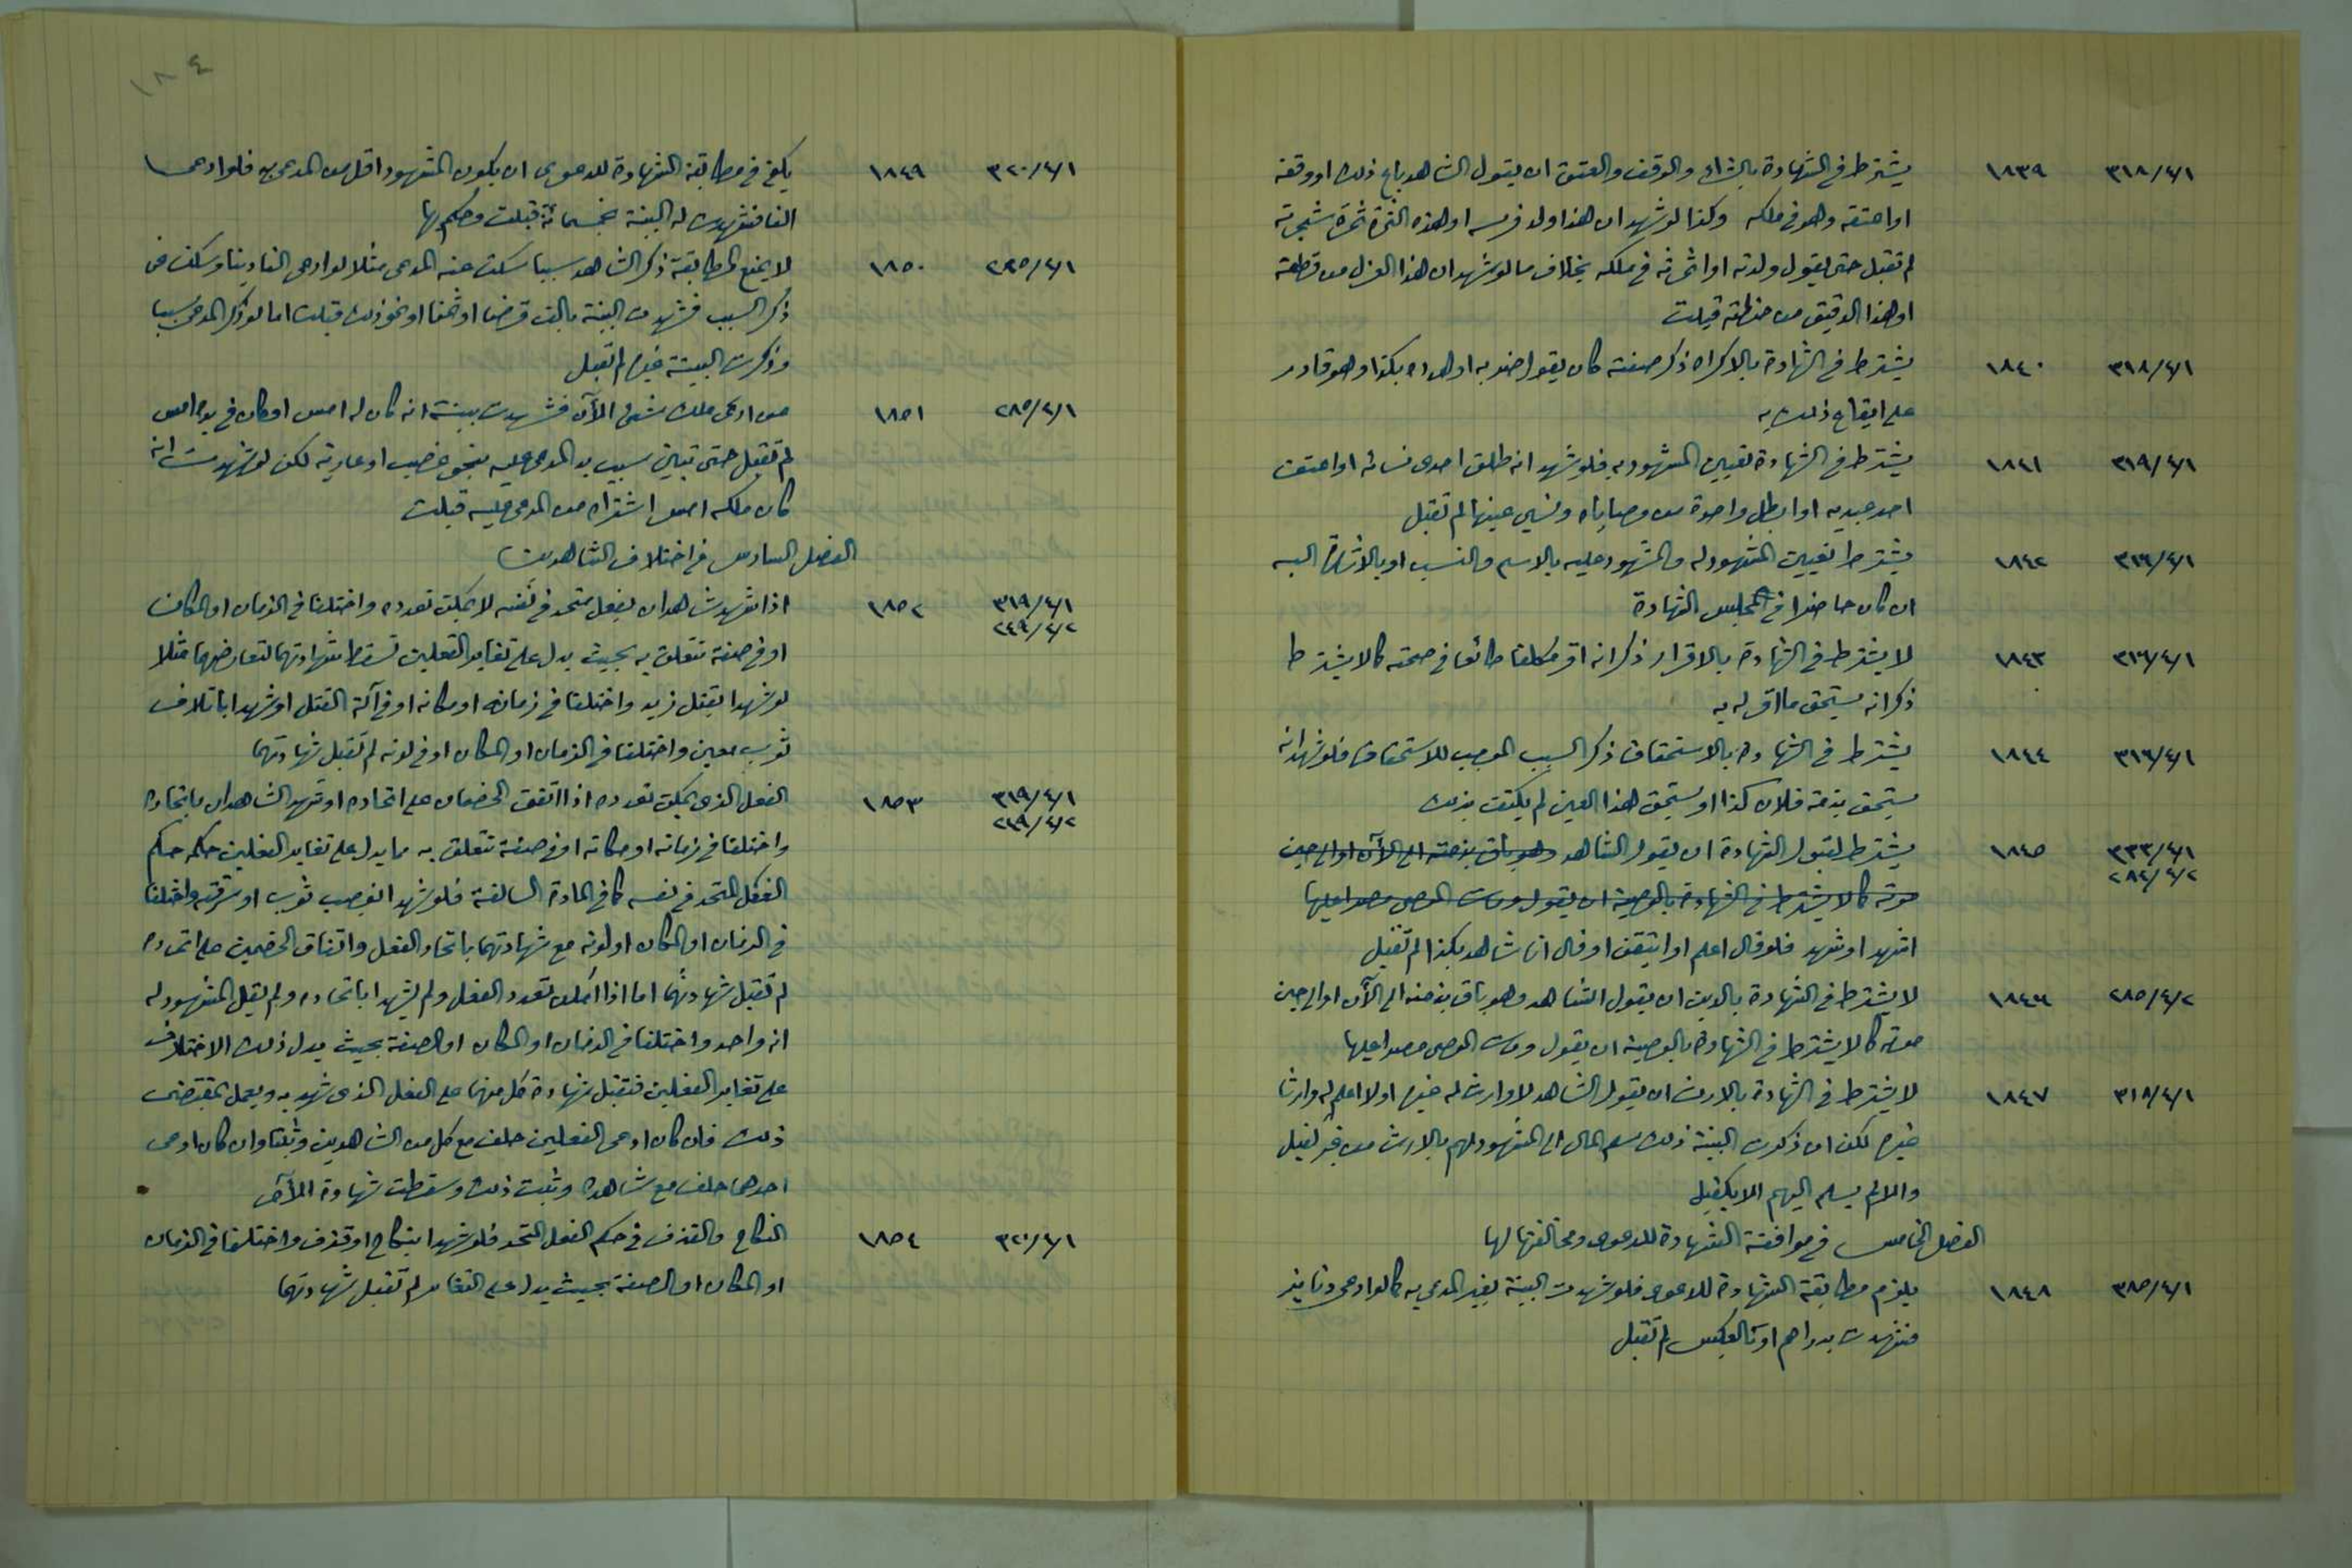 ٣١٨/٤/١ ١٨٣٩ يشترط في الشهادة بالشراء والوقف والعتق ان يقول الشاهد باع ذلك او وقفه
او اعتقه وهو في ملكه وكذا لو شهد ان هذا ولد فرسه او هذه الثمرة ثمرة شجرته
لم تقبل حتى يقول ولدته او اثمرته في ملكه بخلاف ما لو شهد ان هذا الغزل من قطنه
او هذا الدقيق من حنطته قبلت
٣١٨/٤/١ ١٨٤٠ يشترط في الشهادة بالاكراه ذكر صفته كان يقول ضربه او هدده بكذا وهو قادر
على ايقاع ذلك به
٣١٩/٤/١ ١٨٤١ يشترط في الشهادة تعيين المشهود به فلو شهد انه طلق احدى نسائه او اعتق
احد عبيده او ابطل واحدة من وصاياه ونسي عينها لم تقبل
٣١٦/٤/١ ١٨٤٢ يشترط تعيين المشهود له والمشهود عليه بالاسم والنسب او بالاشارة اليه
ان كان حاضرا في مجلس الشهادة
٣١٦/٤/١ ١٨٤٣ لا يشترط في الشهادة بالاقرار ذكر انه اقر مكلفا طائعا في صحته كما لا يشترط
ذكر انه يستحق ما اقر له به
٣١٦/٤/١ ١٨٤٤ يشترط في الشهادة بالاستحقاق ذكر السبب الموجب للاستحقاق فلو شهد انه
يستحق بذمة فلان كذا او يستحق هذا العين لم يكتف بذلك
٣٣٣/٤/١ ١٨٤٥ يشترط لقبول الشهادة ان يقول الشاهد وهو باق بذمته الى الآن او الى حين
٢٨٤/٤/٢ موته كما لا يشترط في الشهادة بالوصية ان يقول ومات الموصي مصرا عليها
اشهد او شهد فلو قال اعلم او اتيقن او قال انا شاهد بكذا لم تقبل
٢٨٥/٤/٢ ١٨٤٦ لا يشترط في الشهادة بالدين ان يقول الشاهد وهو باق بذمته الى الآن او الى حين
موته كما لا يشترط في الشهادة بالوصية ان يقول ومات الموصي مصرا عليها
٣١٨/٤/١ ١٨٤٧ لا يشترط في الشهادة بالارث ان يقول الشاهد لا وارث له غيره او لا اعلم له وارثا
غيره لكن ان ذكرت البينة ذلك سلم المال الى المشهود لهم بالارث من غير كفيل
والا لم يسلم اليهم الا بكفيل
الفصل الخامس في موافقة الشهادة للدعوى ومخالفتها لها
٣٨٥/٤/١ ١٨٤٨ يلزم مطابقة الشهادة للدعوى فلو شهدت البينة بغير المدعى به كما لو ادعى دنانير
فشهدت بدراهم او بالعكس لم تقبل
١٨٤
٣٢٠/٤/١ ١٨٤٩ يكفي في مطابقة الشهادة للدعوى ان يكون المشهود اقل من المدعى به فلو ادعى
الفا فشهدت له البينة بخمسمائة قبلت وحكم بها
٢٩٥/٤/١ ١٨٥٠ لا يمنع المطابقة ذكر الشاهد سببا سكت عنه المدعى مثلا لو ادعى الفا دينا وسكت عن
ذكر السبب فشهدت البينة بالف قرضا او ثمنا او نحو ذلك قبلت اما لو ذكر المدعي سببا
وذكرت البينة غيره لم تقبل
٢٨٥/٤/١ ١٨٥١ من ادعى ملك شيء الآن فشهدت بينته انه كان له امس او كان في يده امس
لم تقبل حتى تبين سبب يد المدعى عليه بنحو غصب او عارية لكن لو شهدت انه
كان ملكه امس اشتراه من المدعى عليه قبلت
الفصل السادس في اختلاف الشاهدين
٣١٩/٤/١ ١٨٥٢ اذا شهد شاهدان بفعل متحد في نفسه لا يمكن تعدده واختلفا في الزمان او المكان
٢٤٩/٤/٢ او في صفة تتعلق به بحيث يدل على تغاير الفعلين تسقط شهادتهما لتعارضهما مثلا
لو شهدا بقتل زيد واختلفا في زمانه او مكانه او في آلة القتل او شهدا باتلاف
ثوب معين واختلفا في الزمان او المكان او في لونه لم تقبل شهادتهما
٣١٩/٤/١ ١٨٥٣ الفعل الذي يمكن تعدده اذا اتفق الخصمان على اتحاده او شهد الشاهدان باتحاده
٢٤٩/٤/٢ واختلفا في زمانه او مكانه او في صفة تتعلق به مما يدل على تغاير الفعلين حكمه حكم
الفعل المتحد في نفسه كما في المادة السالفة فلو شهدا بغصب ثوب او سرقته واختلفا
في الزمان او المكان او لونه مع شهادتهما باتحاد الفعل واتفاق الخصمين على اتحاده
لم تقبل شهادتهما اما اذا امكن تعدد الفعل ولم يشهدا باتحاده ولم يقل المشهود له
انه واحد واختلفا في الزمان او المكان او الصفة بحيث يدل ذلك الاختلاف
على تغاير الفعلين فتقبل شهادة كل منهما على الفعل الذي شهد به ويعمل بمقتضى
ذلك فان كان ادعى الفعلين حلف مع كل من الشاهدين وثبتا وان كان ادعى
احدهما حلف مع شاهده وثبت ذلك وسقطت شهادة الآخر
٣٢٠/٤/١ ١٨٥٤ النكاح والقذف في حكم الفعل المتحد فلو شهدا بنكاح او قذف واختلفا في الزمان
او المكان او الصفة بحيث يدل على التغاير لم تقبل شهادتهما